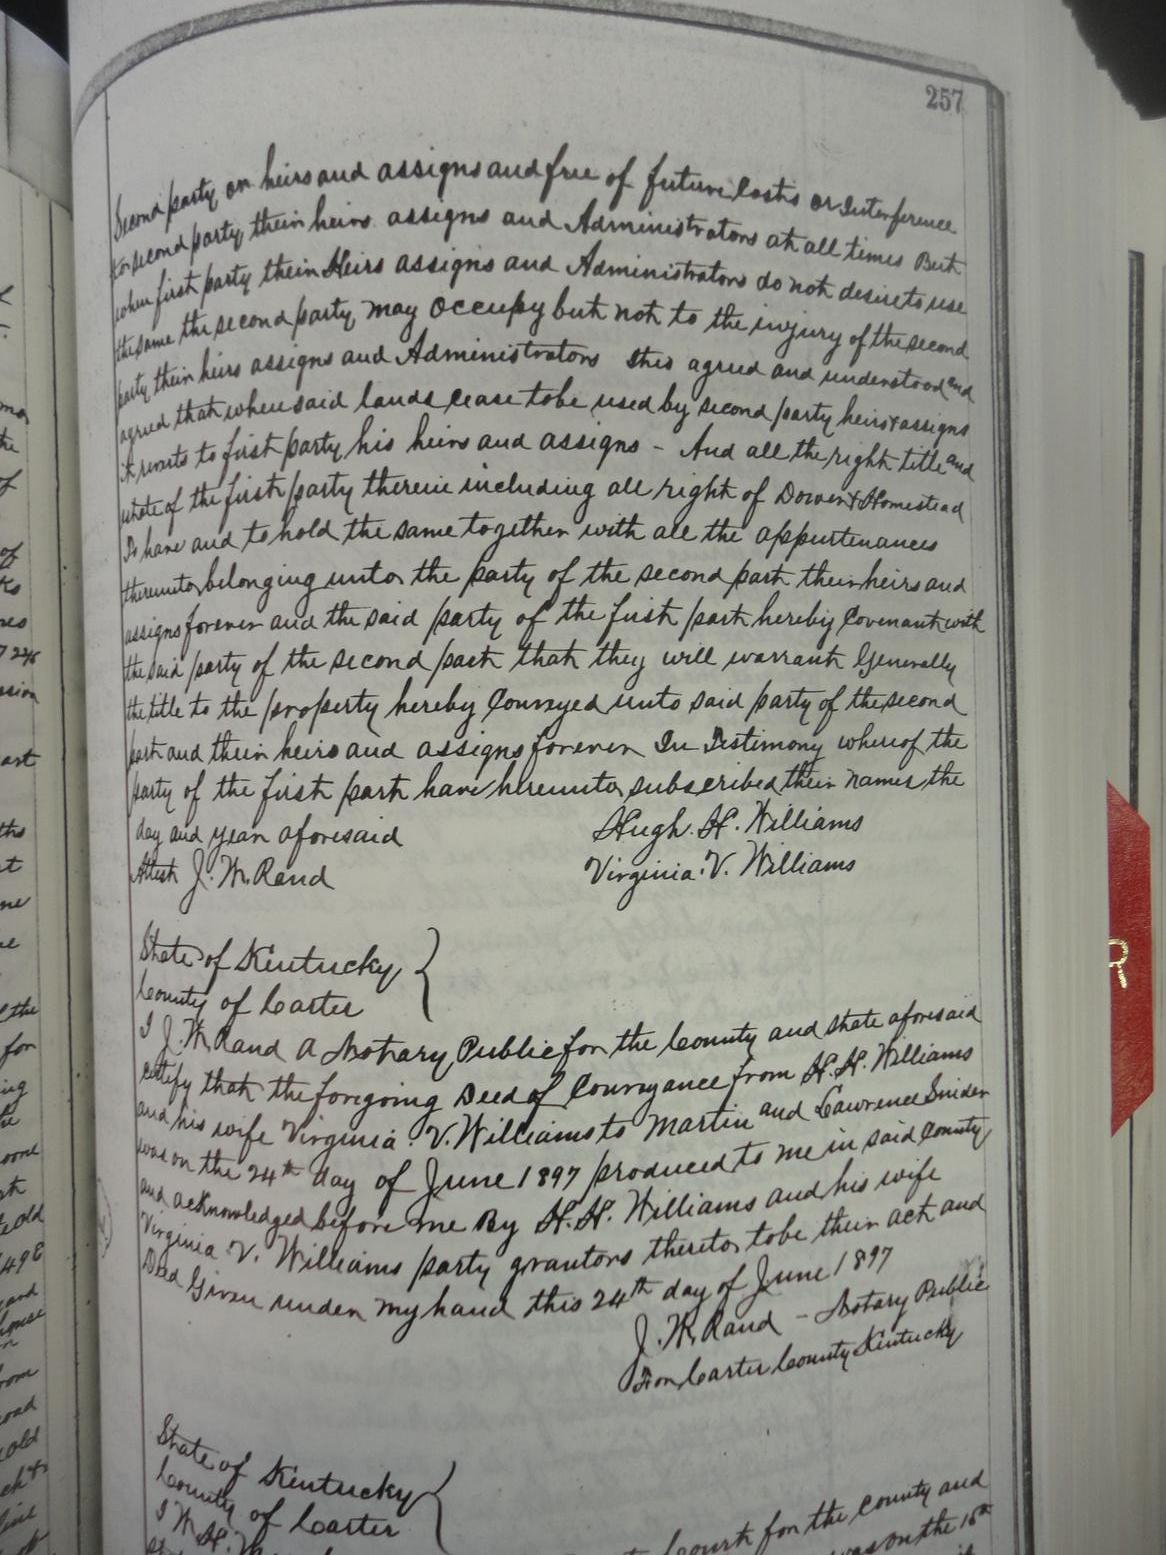 257
Second party or heirs and assigns and free of future Costs or Interference
for second party their heirs assigns and Administrators at all times But
when first party their Heirs assigns and Administrators do not desire to use
the same the second party may occupy but not to the injury of the second
party their heirs assigns and Administrators Itis agreed and understood and
agreed that when said lands cease to be used by second party heirs & assigns
it reverts to first party his heirs and assigns - And all the right title and
estate of the first party therein including all right of Dower & Homestead
To have and to hold the same together with all the appurtenances
thereunto belonging unto the party of the second part their heirs and
assigns forever and the said party of the first part hereby Covenant with
the said party of the second part that they will warrant Generally
the title to the property hereby Conveyed unto said party of the second
part and their heirs and assigns forever In Testimony whereof the
party of the first part have hereunto subscribed their names the
day and year aforesaid Hugh. H. Williams
Attest J. W. Rand Virginia. V. Williams
State of Kentucky
County of Carter
I J. W. Rand A Notary Public for the County and state aforesaid
certify that the foregoing Deed of Conveyance from H. H. Williams
and his wife Virginia. V. Williams to Martin and Lawrence Snider
was on the 24th day of June 1897 produced to me in said County
and acknowledged before me By H. H. Williams and his wife
Virginia V. Williams party grantors thereto to be their act and
Deed Given under my hand this 24th day of June 1897
J. W. Rand - Notary Public
For Carter County Kentucky
State of Kentucky
County of Carter
Court for the County and
was on the 16th
R